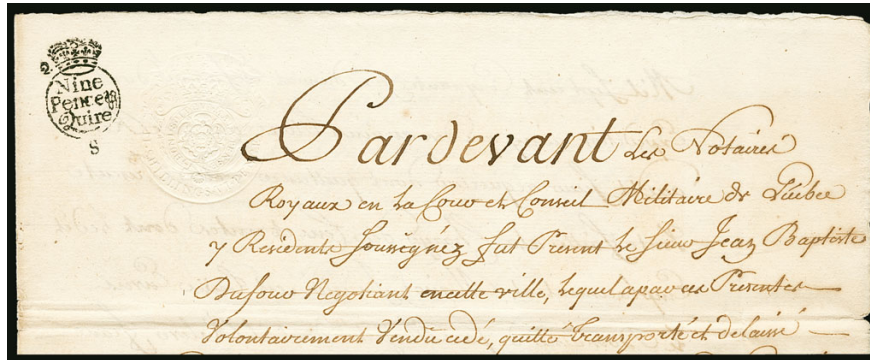 Nine
Pence ₱
Quire
S
Pardevant Les Notaires
Royaux en La Cour et Conseil Militaire de Quebec
y Residents soussignéz fut Present le sieur Jean Baptiste
Dufour Negotiant en cette ville, lequel a par ces Presentes
Volontairement Vendu cedé, quitté transporté et delaissé